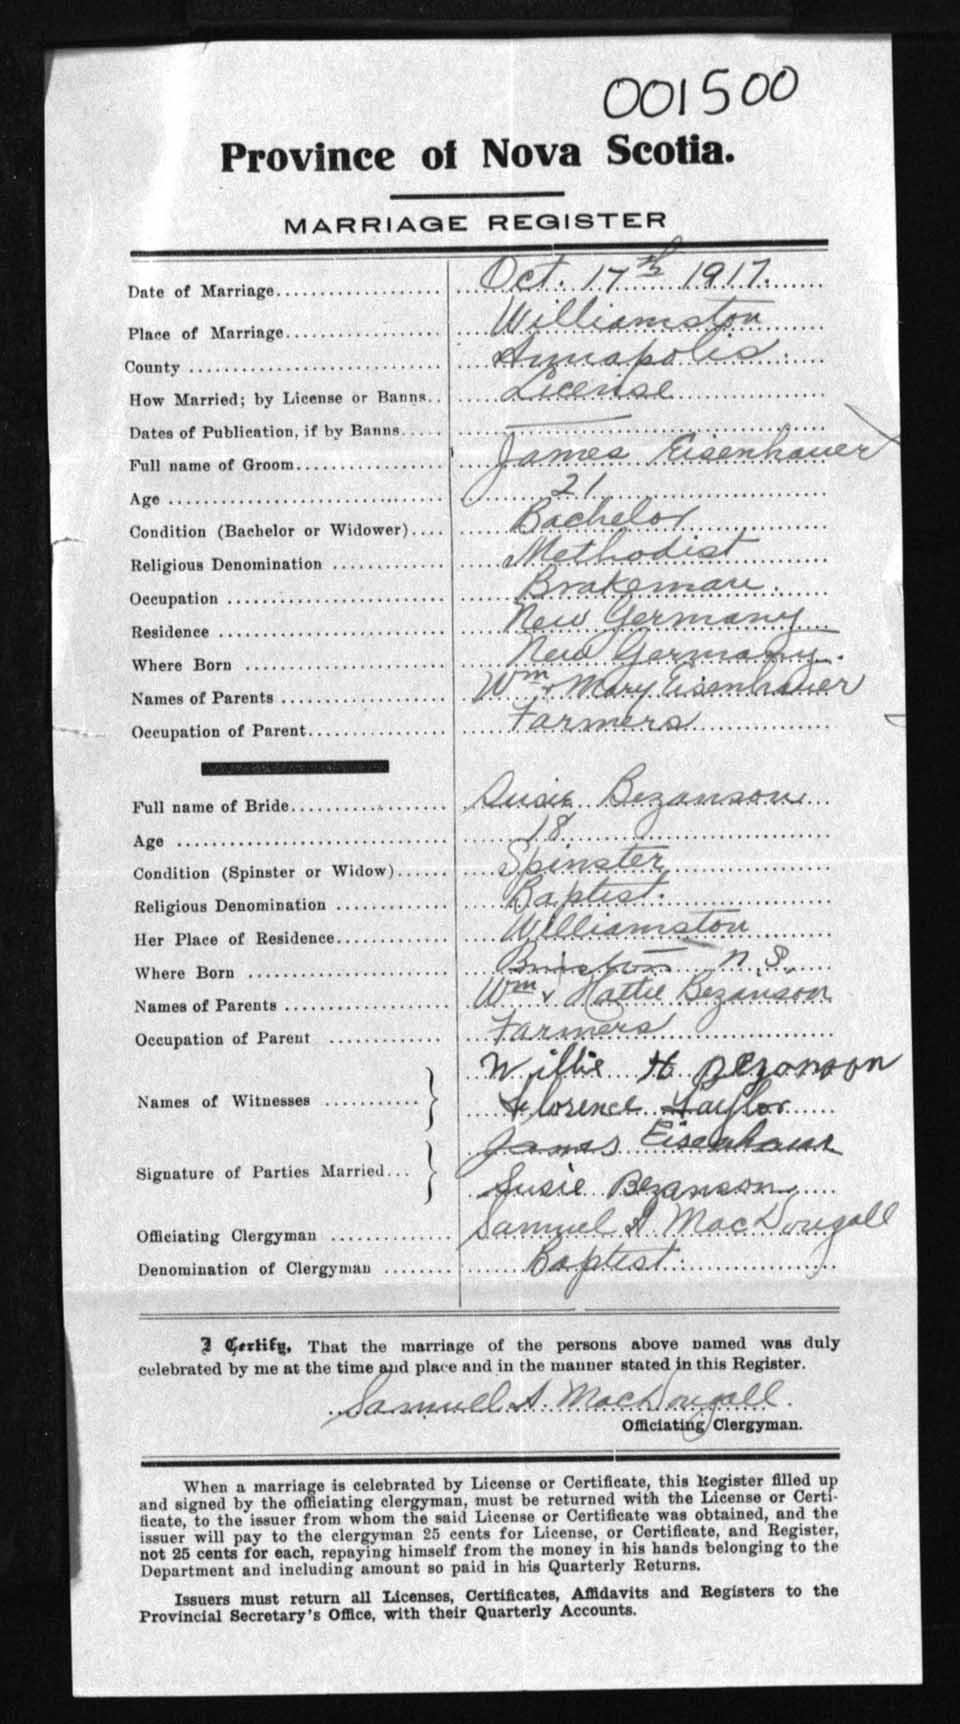 001500
Province of Nova Scotia.
MARRIAGE REGISTER
Date of Marriage.................... Oct. 17th 1917.
Place of Marriage.................... Williamston
County .................... Annapolis.
How Married; by License or Banns.. License
Dates of Publication, if by Banns..... —
Full name of Groom.................... James Eisenhauer
Age .................... 21
Condition (Bachelor or Widower).... Bachelor
Religious Denomination ............. Methodist
Occupation .................... Brakeman.
Residence .................... New Germany
Where Born .................... New Germany.
Names of Parents .................... Wm & Mary Eisenhauer
Occupation of Parent................ Farmers
Full name of Bride.................... Susie Bezanson
Age .................... 18
Condition (Spinster or Widow)...... Spinster
Religious Denomination ............. Baptist.
Her Place of Residence............. Williamston
Where Born .................... N.S.
Names of Parents .................... Wm & Hattie Bezanson
Occupation of Parent ............. Farmers
Names of Witnesses ........... Willie H Bezanson
Florence Taylor
Signature of Parties Married... James Eisenhaur
Susie Bezanson
Officiating Clergyman .............. Samuel S. MacDougall
Denomination of Clergyman ........ Baptist.
I Certify, That the marriage of the persons above named was duly
celebrated by me at the time and place and in the manner stated in this Register.
Samuel S. MacDougall.
Officiating Clergyman.
When a marriage is celebrated by License or Certificate, this Register filled up
and signed by the officiating clergyman, must be returned with the License or Certi-
ficate, to the issuer from whom the said License or Certificate was obtained, and the
issuer will pay to the clergyman 25 cents for License, or Certificate, and Register,
not 25 cents for each, repaying himself from the money in his hands belonging to the
Department and including amount so paid in his Quarterly Returns.
Issuers must return all Licenses, Certificates, Affidavits and Registers to the
Provincial Secretary's Office, with their Quarterly Accounts.